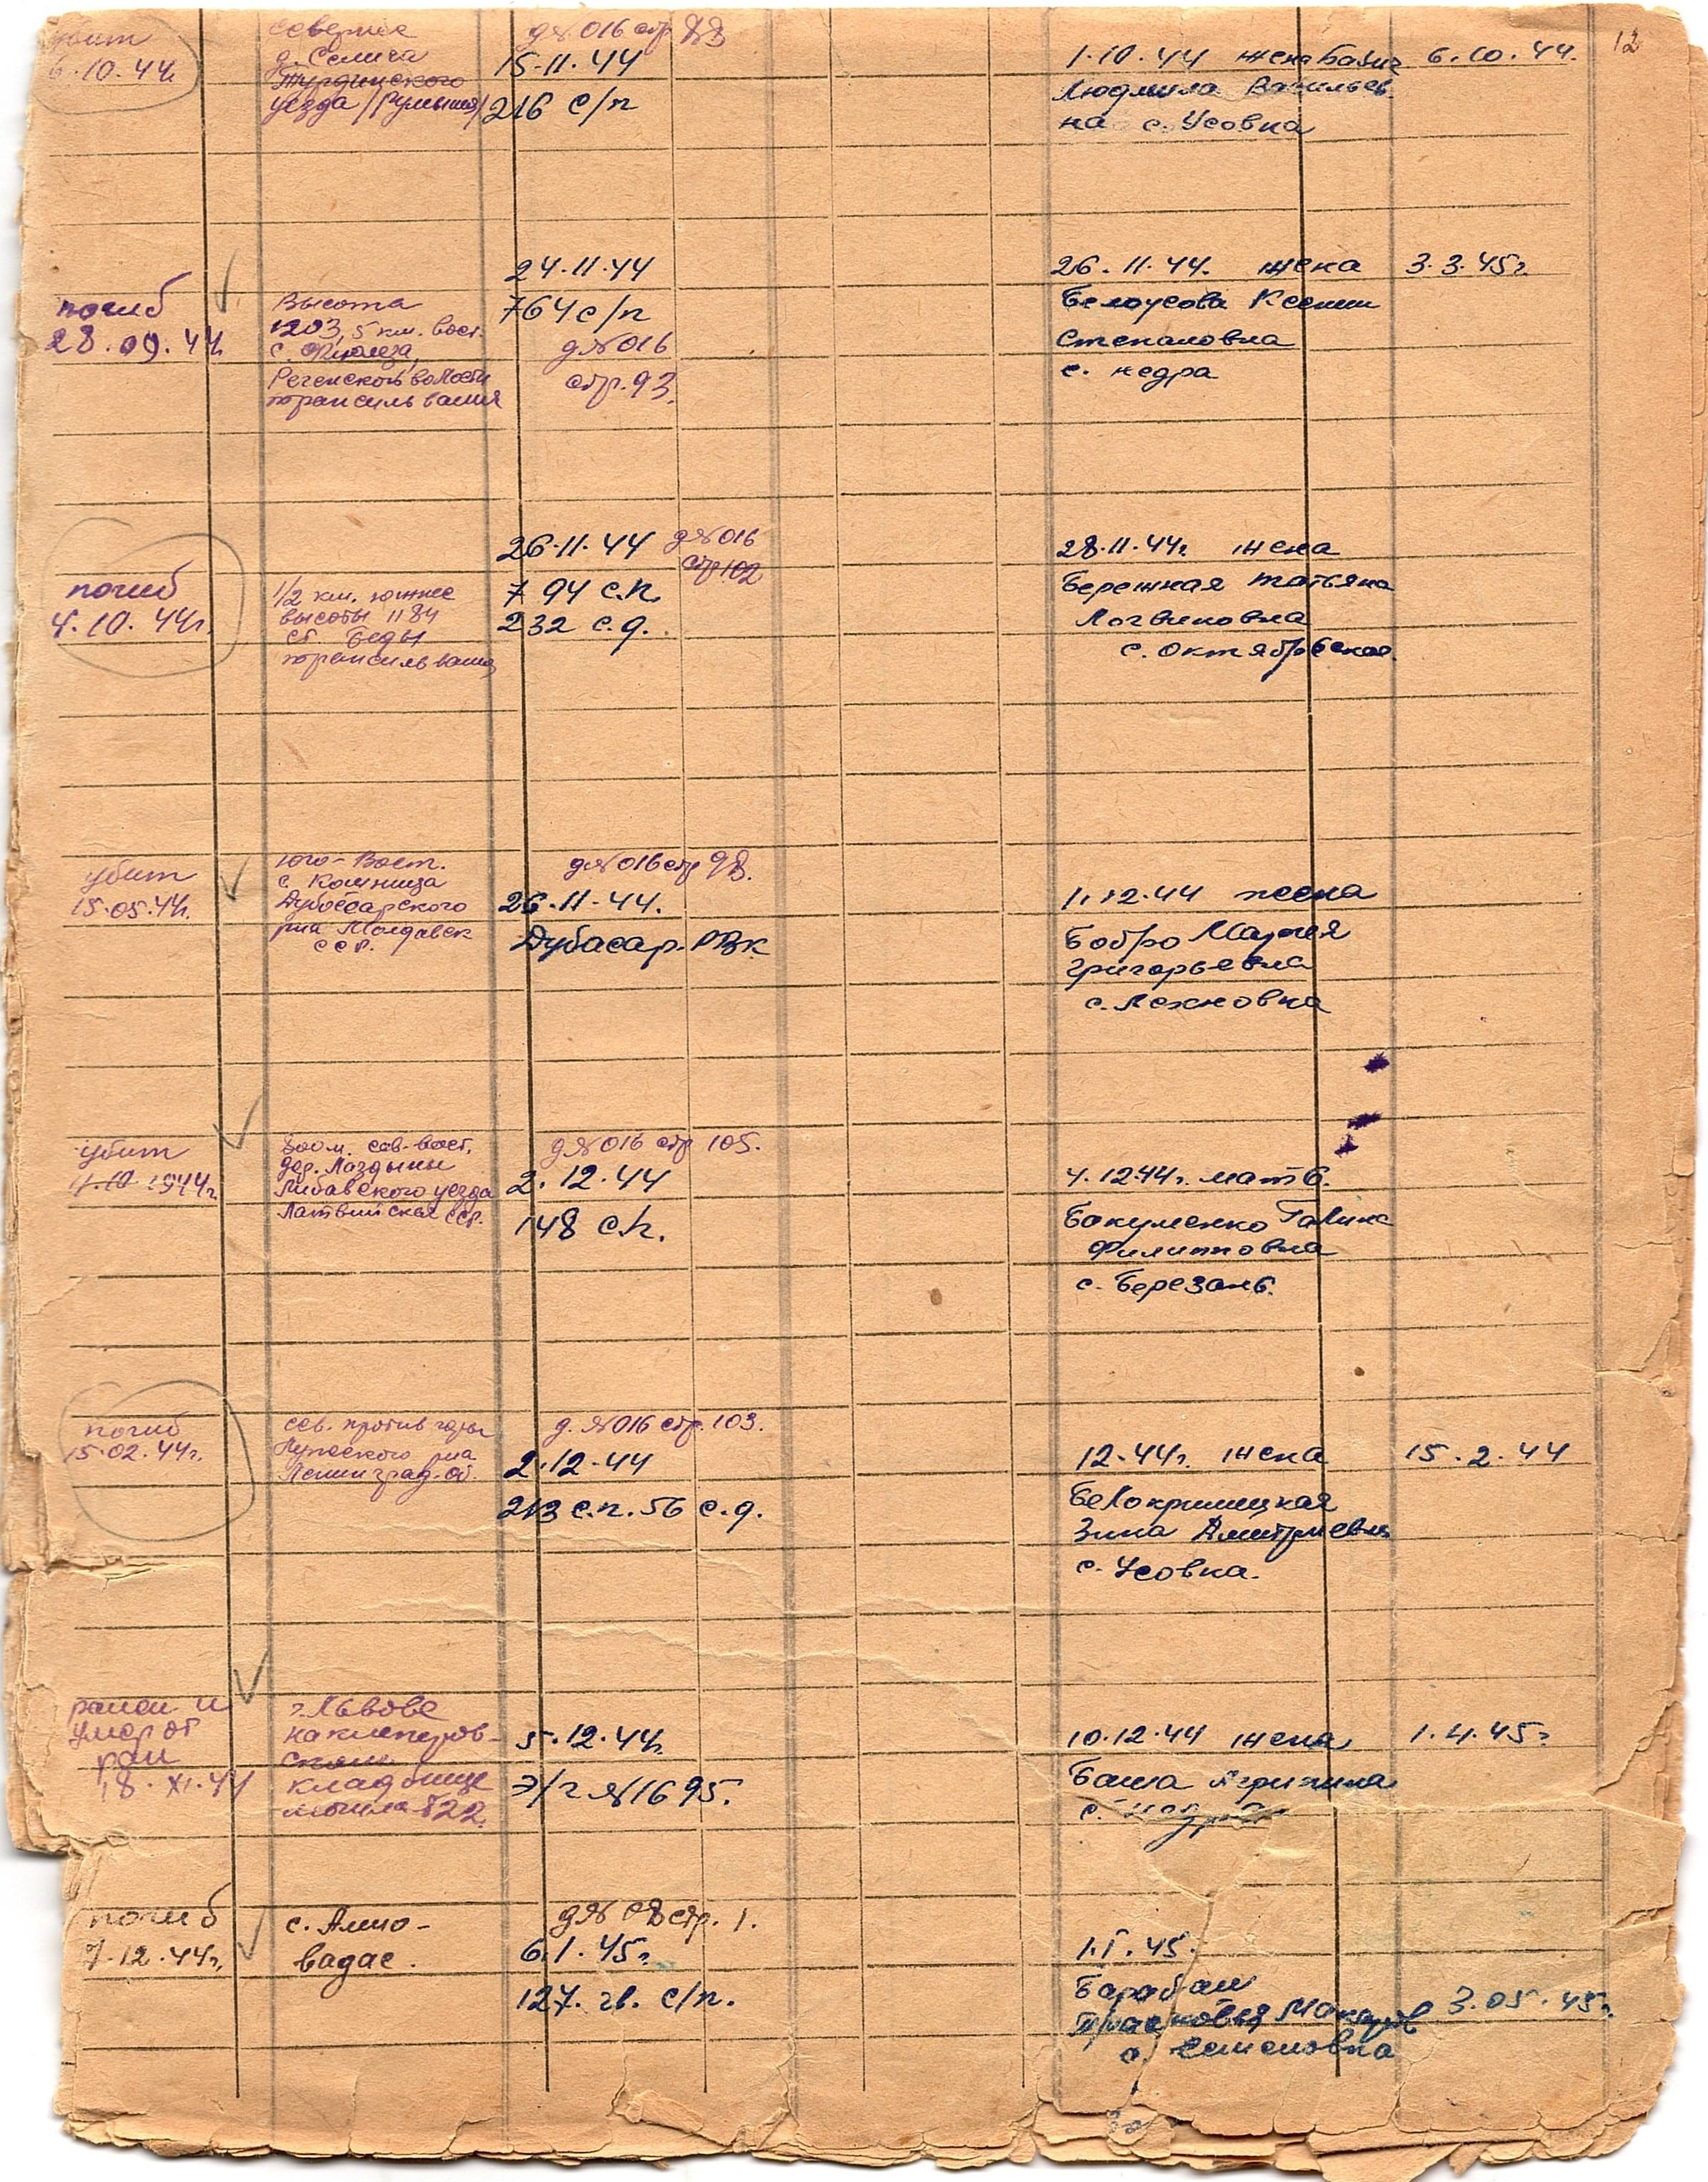 12
убит
6.10.44г.
севернее
д. Селича
Турдинского
уезда /Румыния/
д№016 стр 88
15.11.44
216 с/п
1.10.44 жена Баяк 6.10.44.
Людмила Васильев
на с. Усовка
погиб
28.09.44г.
Высота
1203, 5 км. вост.
с.
Регенской волости
трансильвания
24.11.44
764 с/п
д№016
стр. 93.
26.11.44. жена 3.3.45г.
Белоусова Ксения
Степановна
с. недра
погиб
4.10.44г.
1/2 км. южнее
высоты 1184
ст. Беды
трансильвания
26.11.44 д№016
стр 102
794 с.п.
232 с.д.
28.11.44г. жена
Бережная татьяна
Логвиновна
с. октябрьское.
убит
15.05.44г.
юго-Вост.
с. Кошница
Дубоссарского
р-на Молдавск
ССР.
д№016 стр 98.
26.11.44.
Дубасар. РВК
1.12.44 жена
Бобро Мария
григорьевна
с. Лехновка
убит
4.10.1944г.
800 м. сев-вост.
дер. Лаздыни
Либавского уезда
Латвийская ССР.
д№016 стр 105.
2.12.44
148 с.п.
4.12.44г. мать.
Бакуменко Галина
Филипповна
с. Березань.
погиб
15.02.44г.
сев. против горы
Лужского р-на
Ленинград. об.
д.№016 стр. 103.
2.12.44
213 с.п. 56 с.д.
12.44г. жена 15.2.44
Белокриницкая
Зина Дмитриевна
с. Усовка.
ранен и
умер от
ран
18.XI.44
г. Львове
на клеперов-
ском
кладбище
могила 822.
5.12.44г.
э/г №1695.
10.12.44 жена 1.4.45г.
Баша Агрипина
с.
погиб
7.12.44г.
с. Алио-
вадас.
стр. 1.
6.1.45г.
127. гв. с/п.
1.I.45.
Барабаш
Прасковья Макаров 3.05.45г.
с. Семеновка